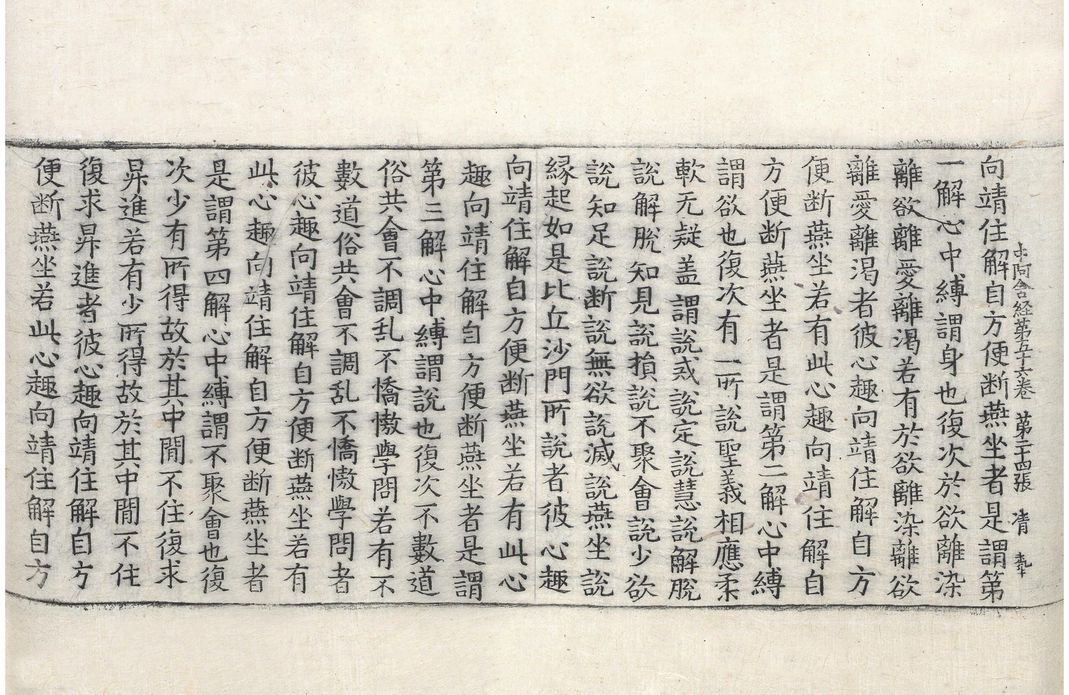 中阿含経第五十六卷 第二十四張 清
向靖住解自方便断燕坐者是謂第
一解心中縛謂身也復次於欲離染
離欲離愛離渴若有於欲離染離欲
離愛離渴者彼心趣向靖住解自方
便断燕坐若有此心趣向靖住解自
方便断燕坐者是謂第二解心中縛
謂欲也復次有一所說聖義相應柔
軟无疑盖謂說戒說定說慧說解脫
說解脫知見說損說不聚會說少欲
說知足說断說無欲說滅說燕坐說
縁起如是比丘沙門所說者彼心趣
向靖住解自方便断燕坐若有此心
趣向靖住解自方便断燕坐者是謂
第三解心中縛謂說也復次不數道
俗共會不調乱不憍慠學問若有不
數道俗共會不調乱不憍慠學問者
彼心趣向靖住解自方便断燕坐若有
此心趣向靖住解自方便断燕坐者
是謂第四解心中縛謂不聚會也復
次少有所得故於其中間不住復求
昇進若有少所得故於其中間不住
復求昇進者彼心趣向靖住解自方
便断燕坐若此心趣向靖住解自方